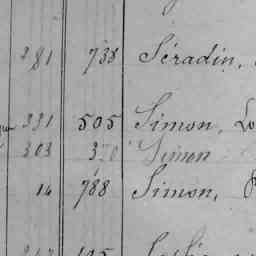 281 738 Séradin,
331 505 Simon, Lo
303 320 Simon
14 788 Simon,